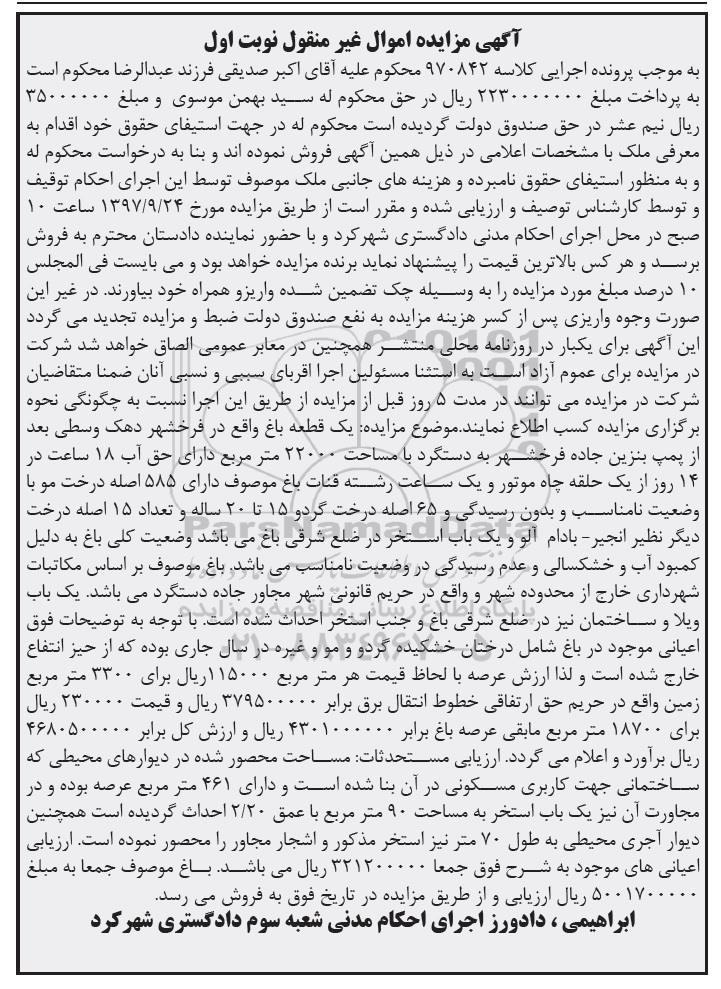 آگهی مزایده اموال غیر منقول نوبت اول
به موجب پرونده اجرایی کلاسه ۹۷۰۸۴۲ محکوم علیه آقای اکبر صدیقی فرزند عبدالرضا محکوم است
به پرداخت مبلغ ۲۲۳۰۰۰۰۰۰۰ ریال در حق محکوم له سید بهمن موسوی و مبلغ ۳۵۰۰۰۰۰۰
ریال نیم عشر در حق صندوق دولت گردیده است محکوم له در جهت استیفای حقوق خود اقدام به
معرفی ملک با مشخصات اعلامی در ذیل همین آگهی فروش نموده اند و بنا به درخواست محکوم له
و به منظور استیفای حقوق نامبرده و هزینه های جانبی ملک موصوف توسط این اجرای احکام توقیف
و توسط کارشناس توصیف و ارزیابی شده و مقرر است از طریق مزایده مورخ ۱۳۹۷/۹/۲۴ ساعت ۱۰
صبح در محل اجرای احکام مدنی دادگستری شهرکرد و با حضور نماینده دادستان محترم به فروش
برسد و هر کس بالاترین قیمت را پیشنهاد نماید برنده مزایده خواهد بود و می بایست فی المجلس
۱۰ درصد مبلغ مورد مزایده را به وسیله چک تضمین شده واریزو همراه خود بیاورند. در غیر این
صورت وجوه واریزی پس از کسر هزینه مزایده به نفع صندوق دولت ضبط و مزایده تجدید می گردد
این آگهی برای یکبار در روزنامه محلی منتشر همچنین در معابر عمومی الصاق خواهد شد شرکت
در مزایده برای عموم آزاد است به استثنا مسئولین اجرا اقربای سببی و نسبی آنان ضمنا متقاضیان
شرکت در مزایده می توانند در مدت ۵ روز قبل از مزایده از طریق این اجرا نسبت به چگونگی نحوه
برگزاری مزایده کسب اطلاع نمایند.موضوع مزایده: یک قطعه باغ واقع در فرخشهر دهک وسطی بعد
از پمپ بنزین جاده فرخشهر به دستگرد با مساحت ۲۲۰۰۰ متر مربع دارای حق آب ۱۸ ساعت در
۱۴ روز از یک حلقه چاه موتور و یک ساعت رشته قنات باغ موصوف دارای ۵۸۵ اصله درخت مو با
وضعیت نامناسب و بدون رسیدگی و ۶۵ اصله درخت گردو ۱۵ تا ۲۰ ساله و تعداد ۱۵ اصله درخت
دیگر نظیر انجیر- بادام آلو و یک باب استخر در ضلع شرقی باغ می باشد وضعیت کلی باغ به دلیل
کمبود آب و خشکسالی و عدم رسیدگی در وضعیت نامناسب می باشد. باغ موصوف بر اساس مکاتبات
شهرداری خارج از محدوده شهر و واقع در حریم قانونی شهر مجاور جاده دستگرد می باشد. یک باب
ویلا و ساختمان نیز در ضلع شرقی باغ و جنب استخر احداث شده است. با توجه به توضیحات فوق
اعیانی موجود در باغ شامل درختان خشکیده گردو و مو و غیره در سال جاری بوده که از حیز انتفاع
خارج شده است و لذا ارزش عرصه با لحاظ قیمت هر متر مربع ۱۱۵۰۰۰ریال برای ۳۳۰۰ متر مربع
زمین واقع در حریم حق ارتفاقی خطوط انتقال برق برابر ۳۷۹۵۰۰۰۰۰ ریال و قیمت ۲۳۰۰۰۰ ریال
برای ۱۸۷۰۰ متر مربع مابقی عرصه باغ برابر ۴۳۰۱۰۰۰۰۰۰ ریال و ارزش کل برابر ۴۶۸۰۵۰۰۰۰۰
ریال برآورد و اعلام می گردد. ارزیابی مستحدثات: مساحت محصور شده در دیوارهای محیطی که
ساختمانی جهت کاربری مسکونی در آن بنا شده است و دارای ۴۶۱ متر مربع عرصه بوده و در
مجاورت آن نیز یک باب استخر به مساحت ۹۰ متر مربع با عمق ۲/۲۰ احداث گردیده است همچنین
دیوار آجری محیطی به طول ۷۰ متر نیز استخر مذکور و اشجار مجاور را محصور نموده است. ارزیابی
اعیانی های موجود به شرح فوق جمعا ۳۲۱۲۰۰۰۰۰ ریال می باشد. باغ موصوف جمعا به مبلغ
۵۰۰۱۷۰۰۰۰۰ ریال ارزیابی و از طریق مزایده در تاریخ فوق به فروش می رسد.
ابراهیمی ، دادورز اجرای احکام مدنی شعبه سوم دادگستری شهرکرد
ParsNamadData
پایگاه اطلاع رسانی مناقصه و مزایده
۰۲۱-۸۸۳۴۹۶۷۰-۵